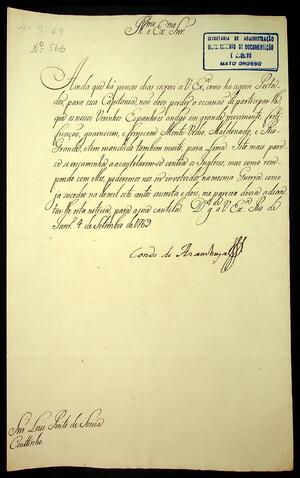 4-9-69
Nº 566
Illmo. e Exmo. Snr.
SECRETARIA DE ADMINISTRAÇÃO
DEPARTAMENTO DE DOCUMENTAÇÃO
E ARQUIVO
MATO GROSSO
Ainda que há poucos dias escrevi a V. Exa. como ha agora Porta-
dor, para essa Capitania, não devo perder a occasião de participar-lhe,
que os nossos Vezinhos Espanhoes andão em grande movimento, forti-
ficação, guarnecem, e fornecem Monte Video, Maldonado, e Rio
Grande, e tem mandado tambem muito, para Lima. Isto mais pare-
ce se encaminha, a acautelarem-se contra os Inglezes, mas como rom-
pendo com elles, poderemos nos ser involvidos na mesma Guerra, como
ja sucedeo na de mil sete centos secenta e dous, me pareceo devia adian-
tar-lhe esta noticia, para a sua cautela. Ds. gde. a V. Exa. Rio de
Janro. 4 de Setembro de 1769
Conde de Azambuja
Snr. Luis Pinto de Souza
Couttinho.